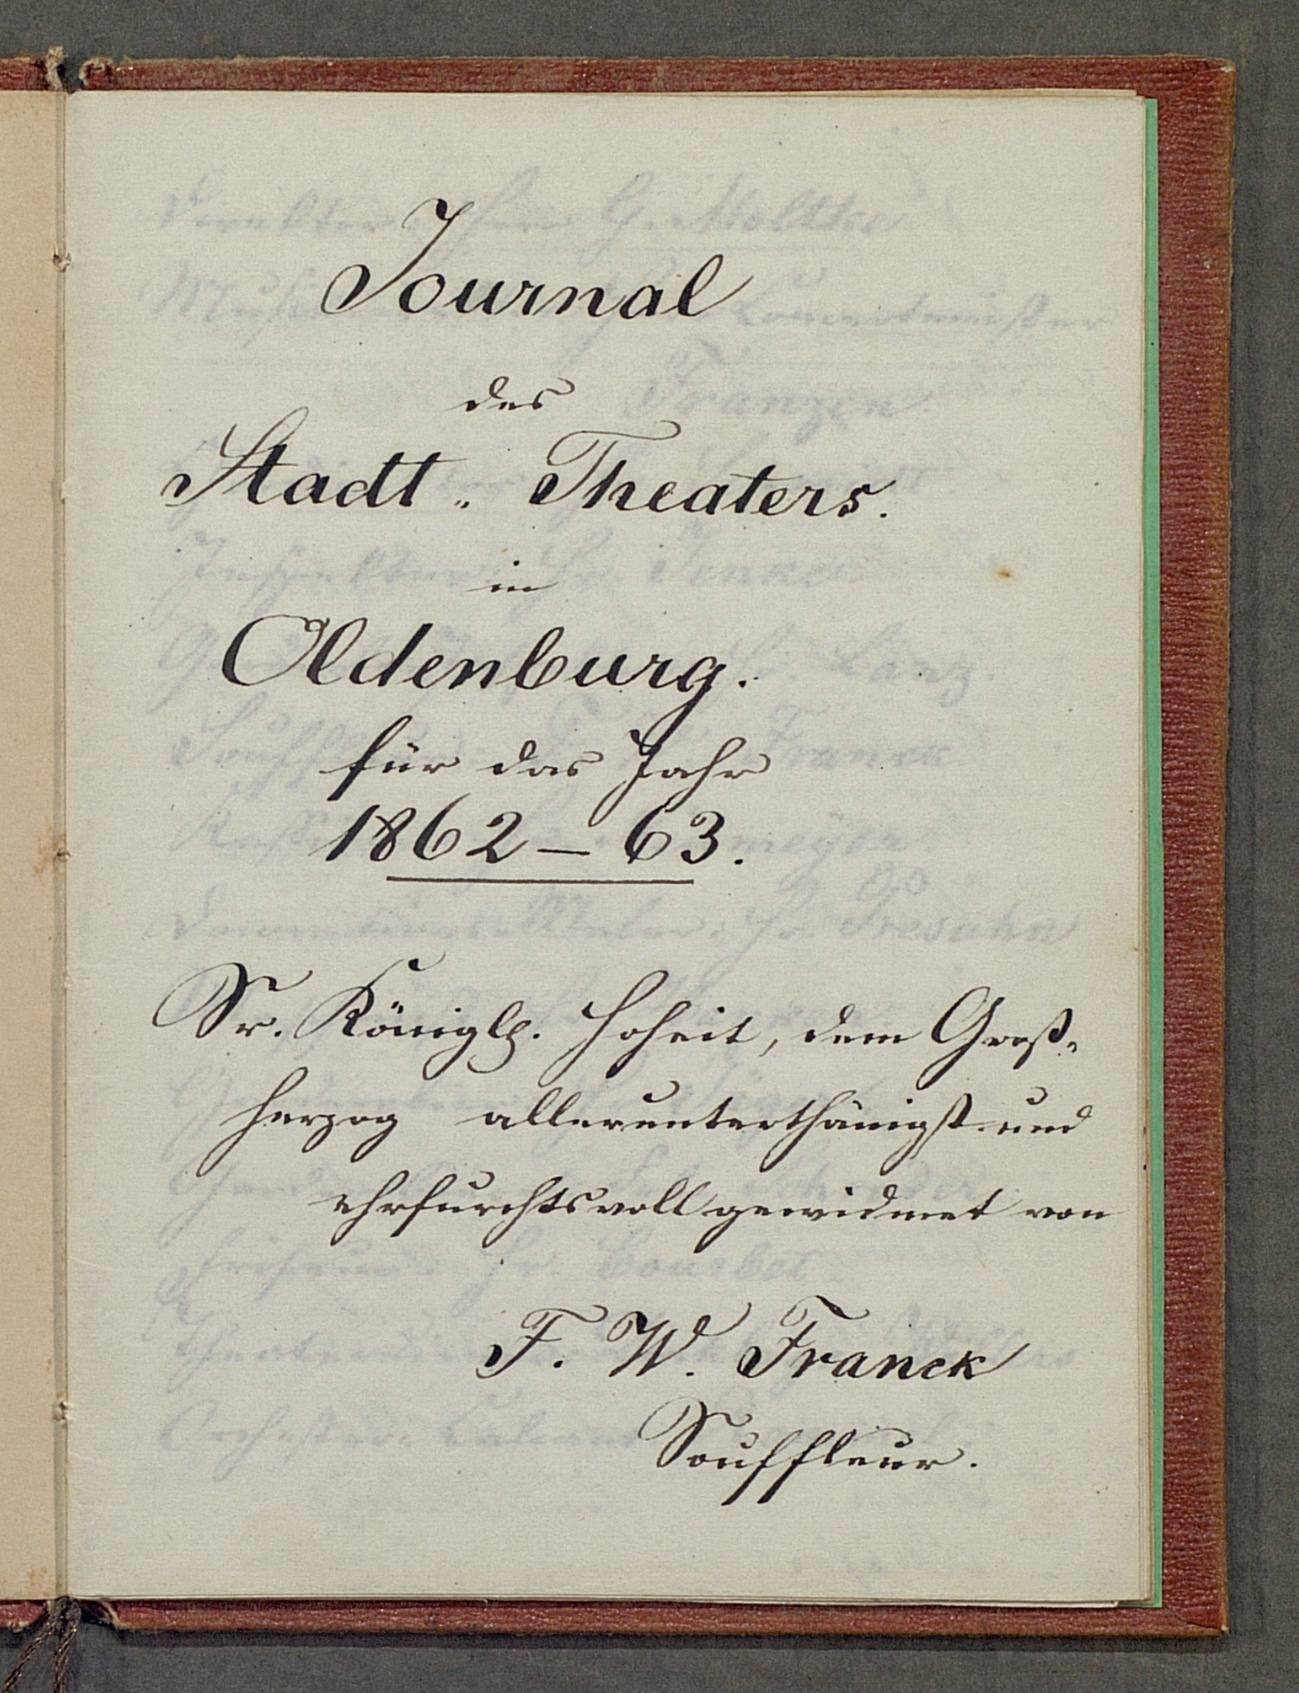 Journal
des
Stadt-Theaters.
in
Oldenburg.
für das Jahr
1862 – 63.
Sr. Königlh. Hoheit, dem Groß-
herzog allerunterthänigst und
ehrfurchtsvoll gewidmet von
F. W. Franck
Souffleur.